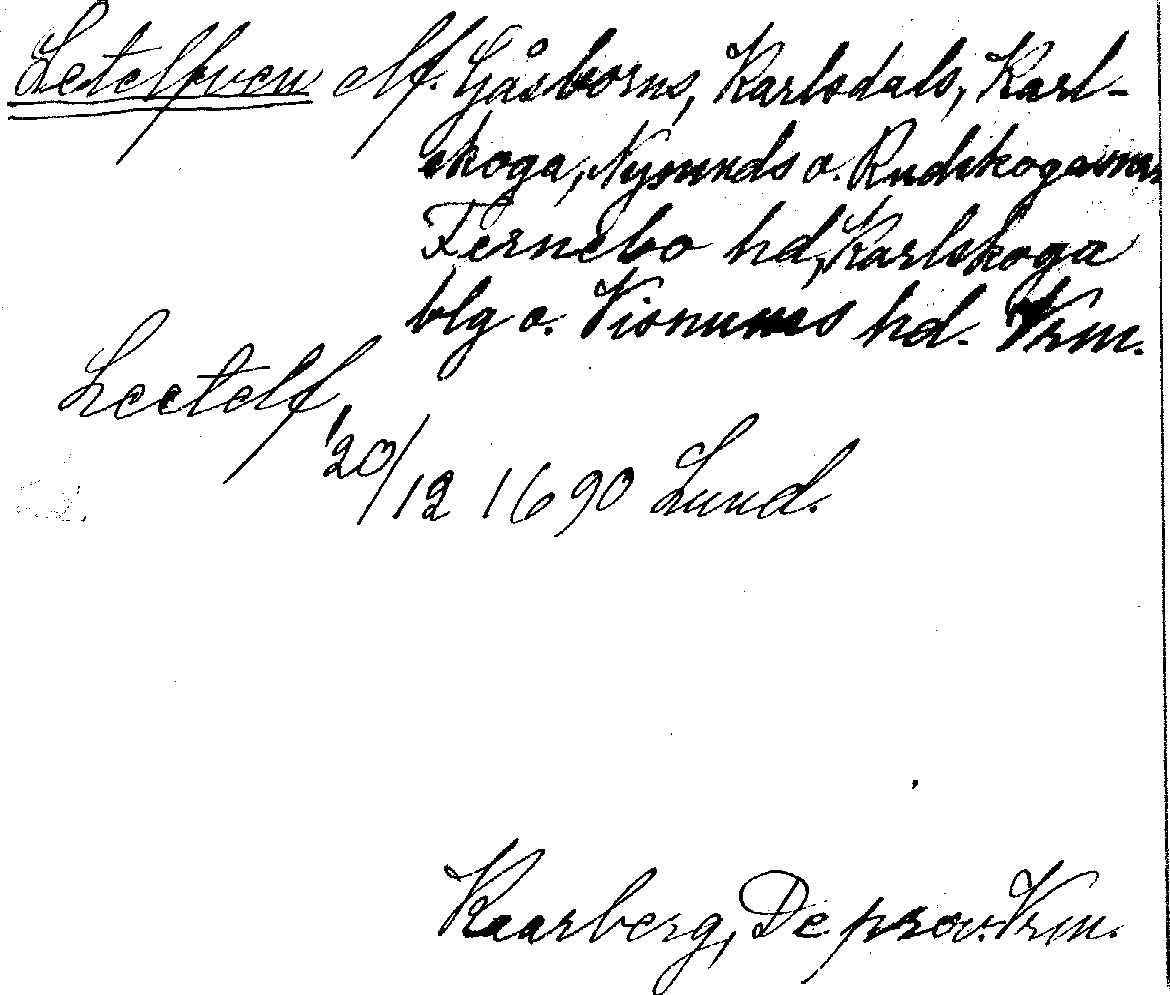 Letelfven elf. Gåsborns, Karlsdals, Karl-
skoga, Nysunds o. Rudskoga snr
Fernebo hd, Karlskoga
blg o. Visnums hd. Vrm.
Leetelf
20/12 1690 Lund.
Kaarberg, De prov. Vrm.